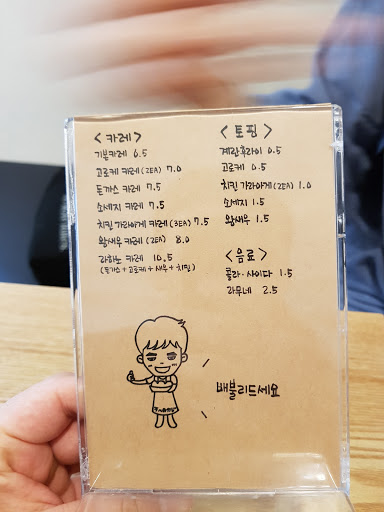 <카레>
기본카레 6.5
고로케 카레(2EA) 7.0
돈까스 카레 7.5
소세지 카레 7.5
치킨 가라아게 카레(3EA) 7.5
왕새우 카레(2EA) 8.0
라하노 카레 10.5
(돈까스+고로케+새우+치킨)
<토핑>
계란후라이 0.5
고로케 0.5
치킨 가라아게(2EA) 1.0
소세지 1.5
왕새우 1.5
<음료>
콜라·사이다 1.5
라무네 2.5
배불리드세요